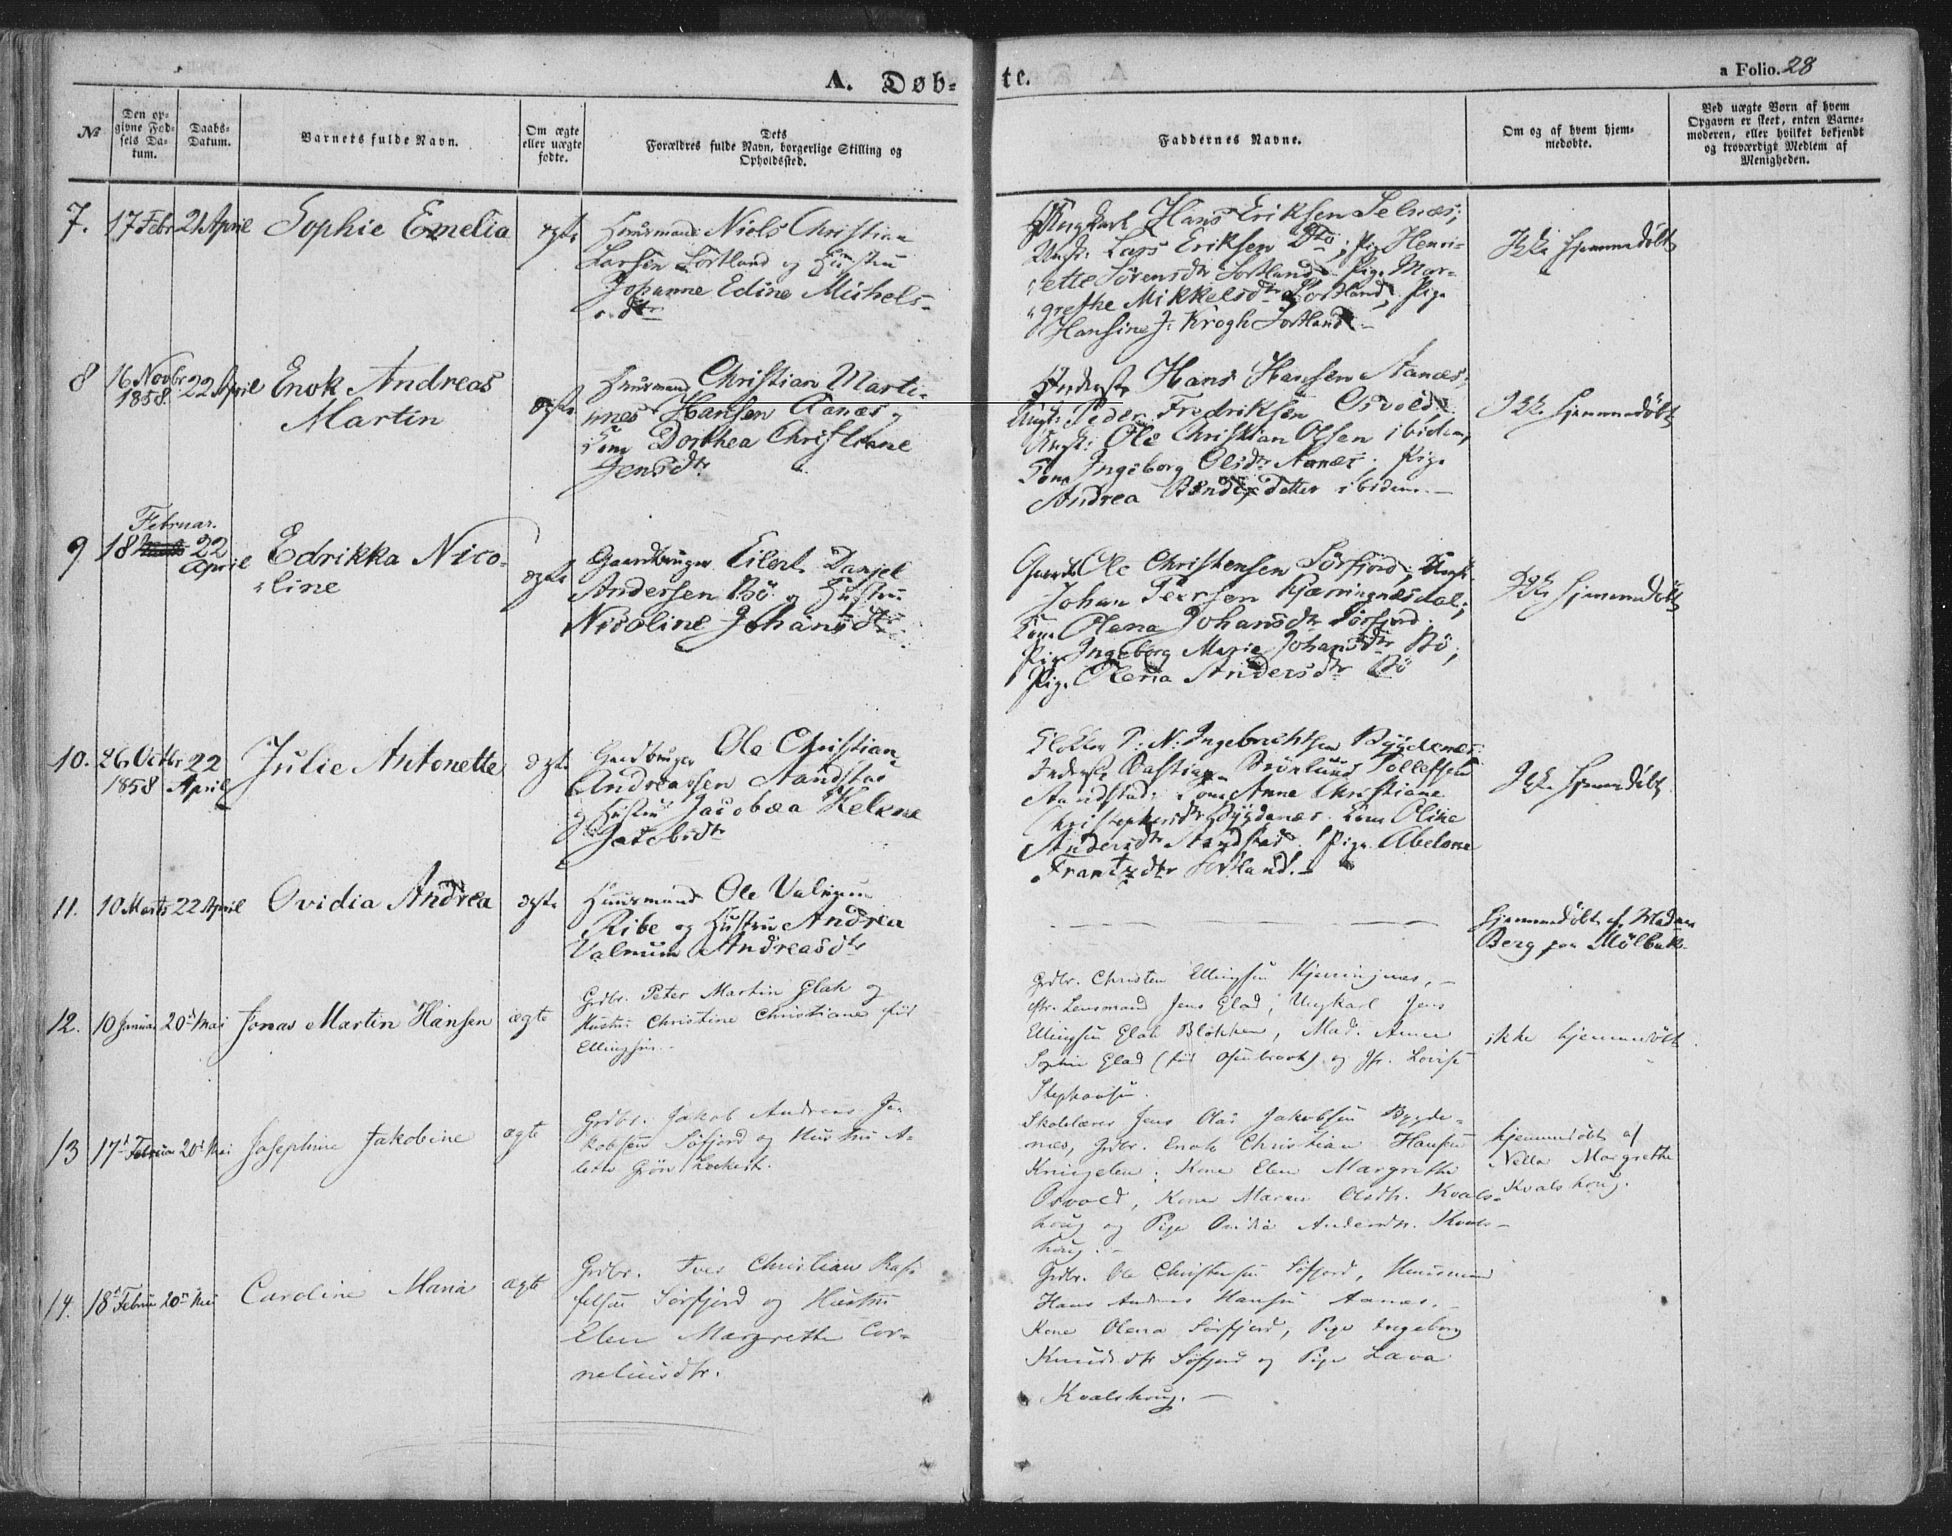 A. Døb-
te.
a Folio. 28
No
Den op-
givne Fød-
sels Da-
tum.
Daabs-
Datum.
Barnets fulde Navn.
Om ægte
eller uægte
fødte.
Dets
Forældres fulde Navn, borgerlige Stilling og
Opholdssted.
Faddernes Navne.
Om og af hvem hjem-
medøbte.
Ved uægte Børn af hvem
Opgaven er skeet, enten Barne-
moderen, eller hvilket bekjendt
og troværdigt Medlem af
Menigheden.
7. 17 Febr 21 April Sophie Emelia ægte
Huusmand Niels Christian
Larsen Sortland og Hustru
Johanne Edine Michels-
dtr
Ungkarl Hans Eriksen Selnæs;
Ungk. Lars Eriksen Do; Pige Henri-
ette Sørensdtr Sortland. Pige Mar-
grethe Mikkelsdtr Sortland; Pige
Hansine J. Krogh Sortland.-
Ikke hjemmedøbt
8 16 Novbr 1858. 22 April Enok Andreas
Martin
ægte
Huusmand Christian Marti-
nus Hansen Aanæs og
Kone Dorthea Christiane
Jensdtr
Hans Hansen Aanæs;
Ungk. Peder Fredriksen Osvold;
Ungk. Ole Christian Olsen ibidem,
Kone Ingeborg Olsdtr Aanæs; Pige
Andrea ibidem.-
Ikke hjemmedøbt
9 18 Februar. 22 April Edrikka Nico-
line
ægte
Gaardbruger Eilert Daniel
Andersen Bö og Hustru
Nicoline Johansdtr
Ole Christensen Sörfjord; Ungk.
Johan Peersen Kjærringnæsdal;
Kone Olena Johansdtr Sörfjord.
Pige Ingeborg Marie Johansdtr Bö;
Pige Olena Andersdtr Bö
Ikke hjemmedøbt
10. 26 Octbr 1858 22 April Julie Antonette ægte
Gaardbruger Ole Christian
Andreassen Sandstad
og Hustru Jacobæa Helene
Jacobsdtr
Klokker P. N. Ingebrechtsen Bygdenæs;
Bastian Brönlund Tolleffsen
Sandstad; Kone Anne Christiane
Christophersdtr Bygdenæs. Kone Oline
Andersdtr Sandstad. Pige Abelone
Frantzdtr Sortland.-
Ikke hjemmedøbt
11. 10 Marts 22 April Ovidia Andrea ægte
Huusmand Ole Valnum
Ribe og Hustru Andrea
Valnum Andreasdtr
Hjemmedøbt af Madam
Berg paa Mölbak.
12. 10 Januar 20de Mai Jonas Martin Hansen ægte
Grdbr. Peter Martin Glad og
Hustru Christine Christiane föd
Ellingsen.
Grdbr. Christen Ellingsen Kjerringnæs,-
fhv. Lensmand Jens Glad, Ungkarl Jens
Ellingsen Glad Blokken, Mad. Anna
Sophie Glad (föd) og Jfr. Lovise
Stephansen.
ikke hjemmedöbt.
13 17de Februar 20de Mai Josephine Jakobine ægte
Grdbr. Jakob Andreas Ja-
kobsen Söfjord og Hustru A-
lette Gjön Lockert.
Skolelærer Jens Olai Jakobsen Bygde-
næs, Grdbr. Enok Christian Hansen
Kone Elen Margrethe
Osvold, Kone Maren Olsdtr. Kvals-
houg og Pige Ovidia Andersdtr. Kvals-
houg.-
hjemmedöbt af
Nella Margrethe
Kvalshoug.
14. 18de Februar 20de Mai Caroline Maria ægte
Grdbr. Iver Christian Ras-
Sörfjord og Hustru
Elen Margrethe Cor-
neliusdtr.
Grdbr. Ole Christensen Söfjord, Huusmand
Hans Andreas Hansen Aanæs.-
Kone Olena Sörfjord, Pige Ingeborg
Knudsdtr Söfjord og Pige Lava
Kvalshoug.-